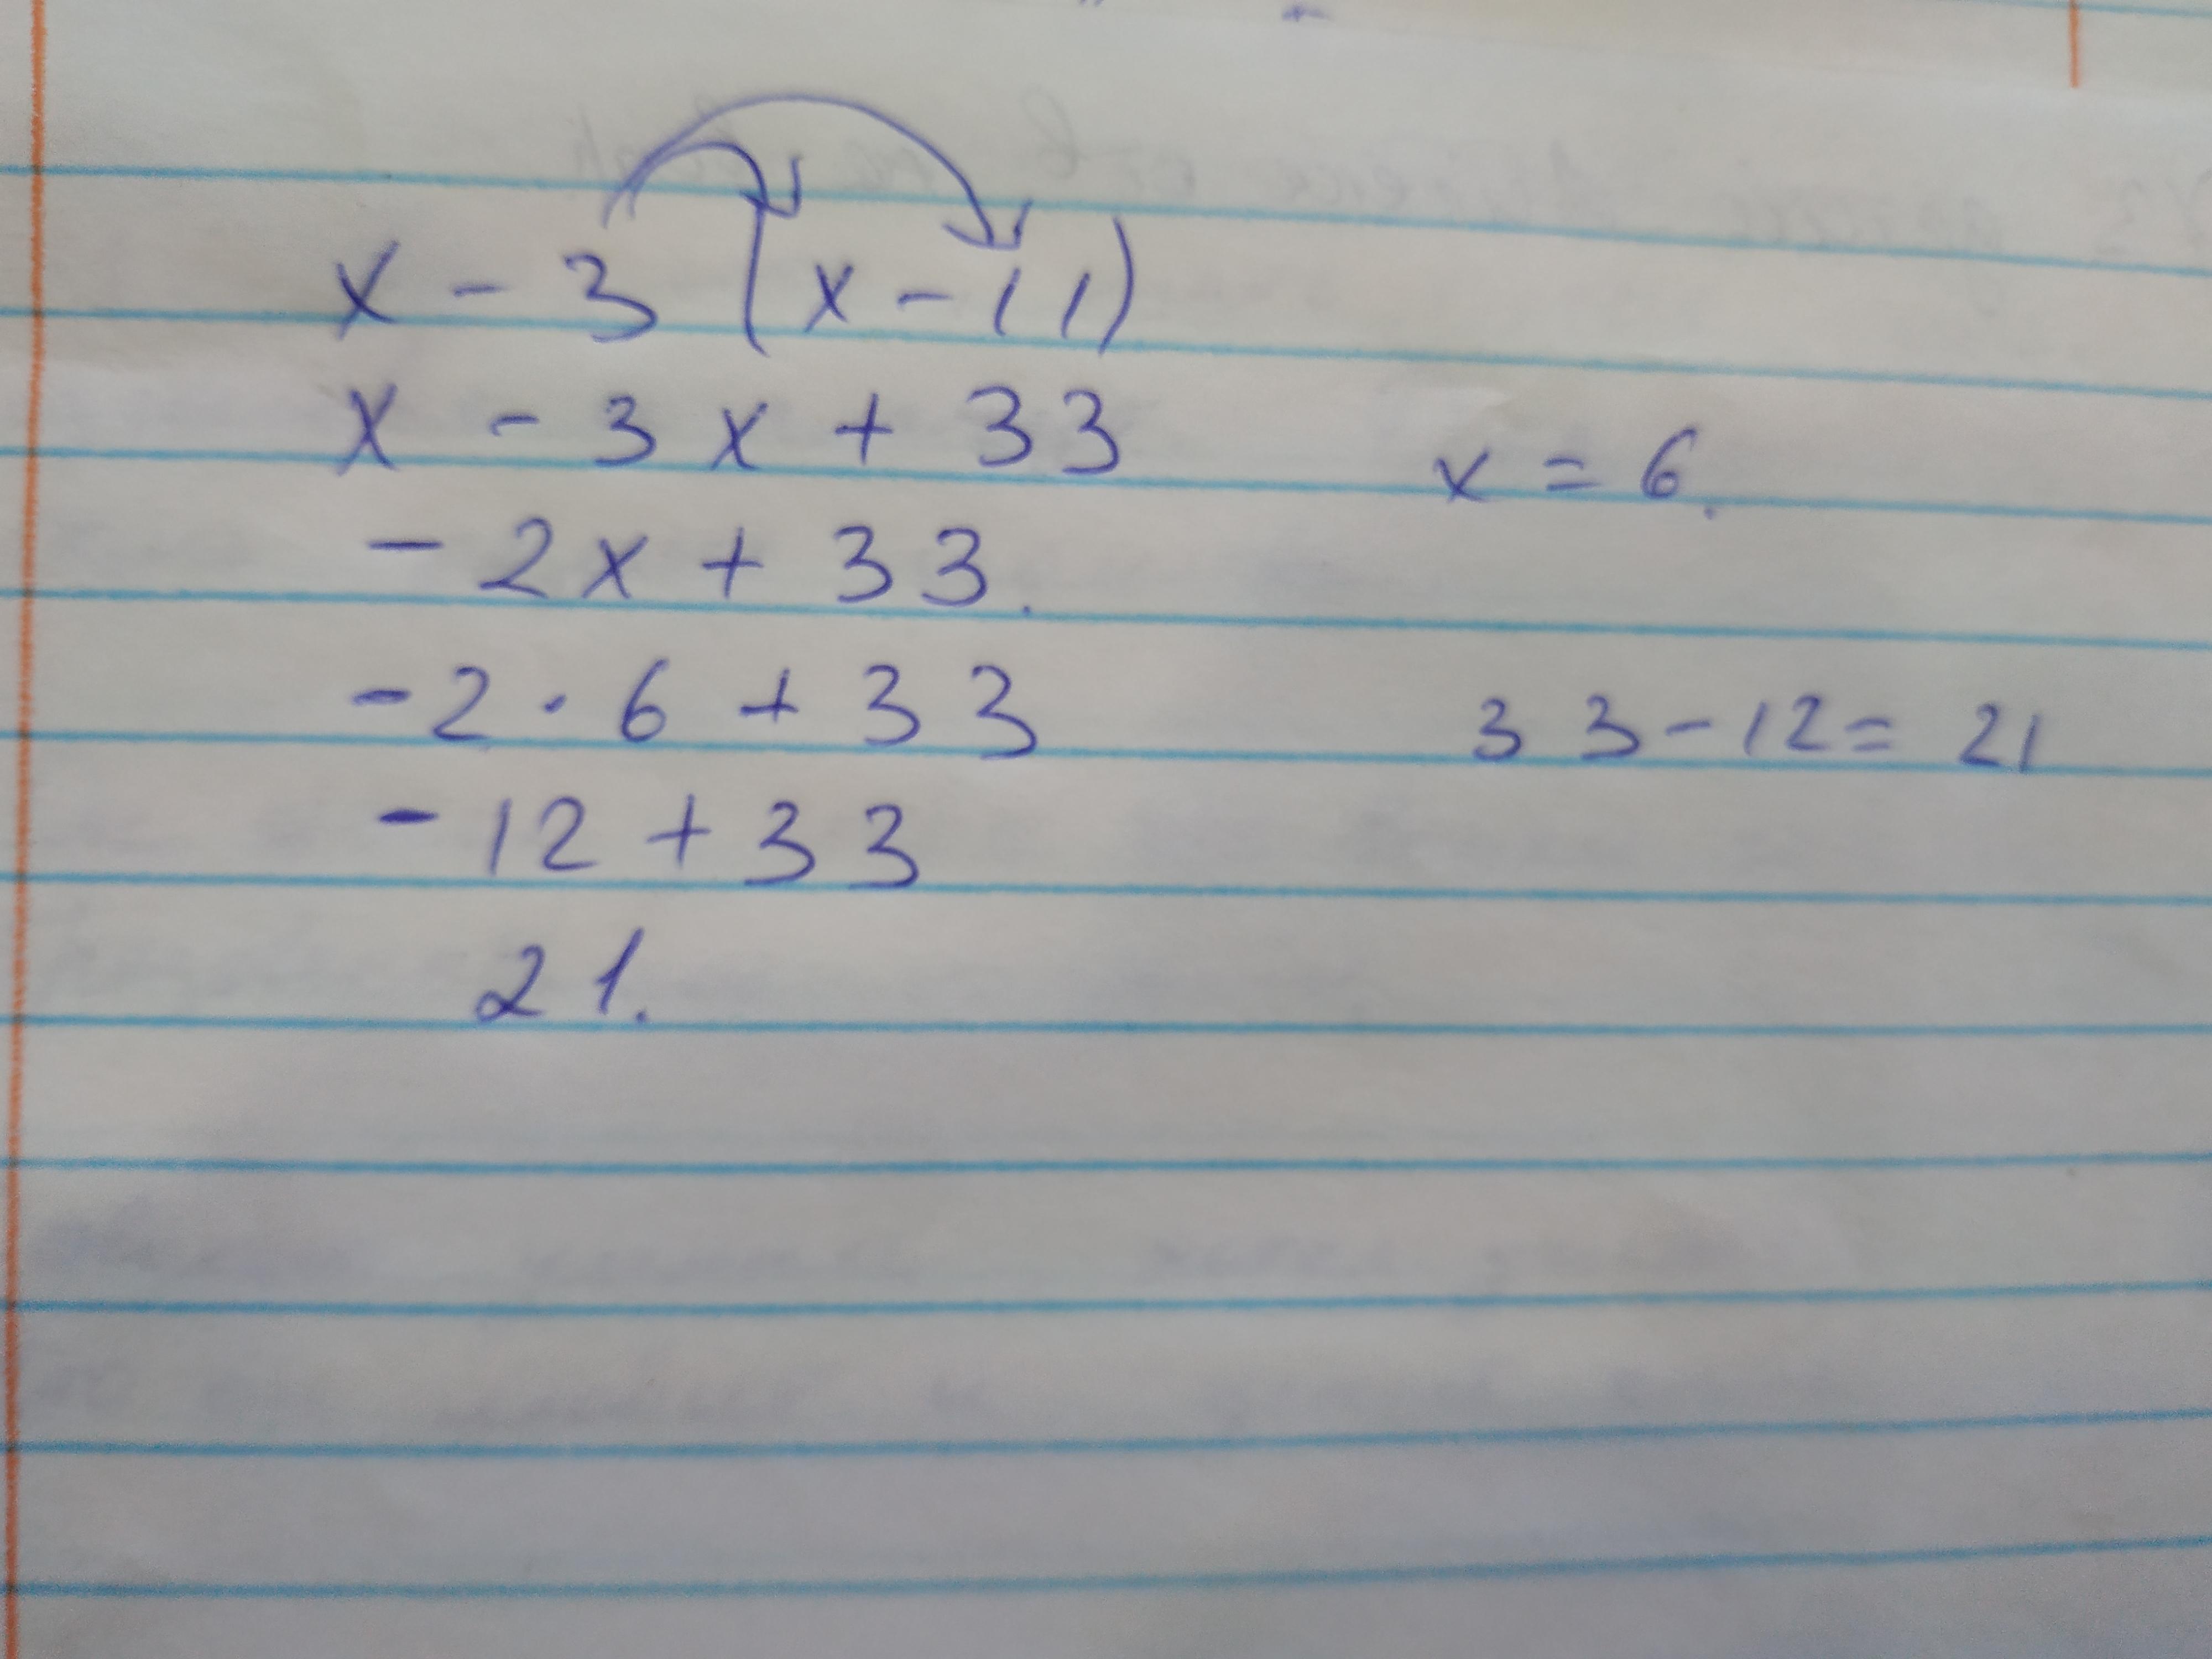 x - 3 (x - 11)
x - 3x + 33
x = 6.
- 2x + 33.
- 2 · 6 + 33
33 - 12 = 21
- 12 + 33
21.